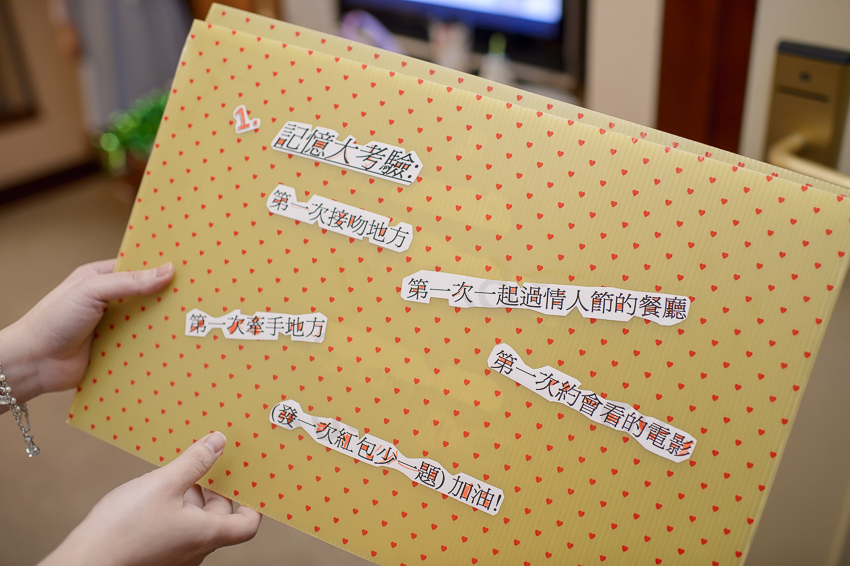 1.
記憶大考驗:
第一次接吻地方
第一次一起過情人節的餐廳
第一次牽手地方
第一次約會看的電影
(發一次紅包少一題)加油!